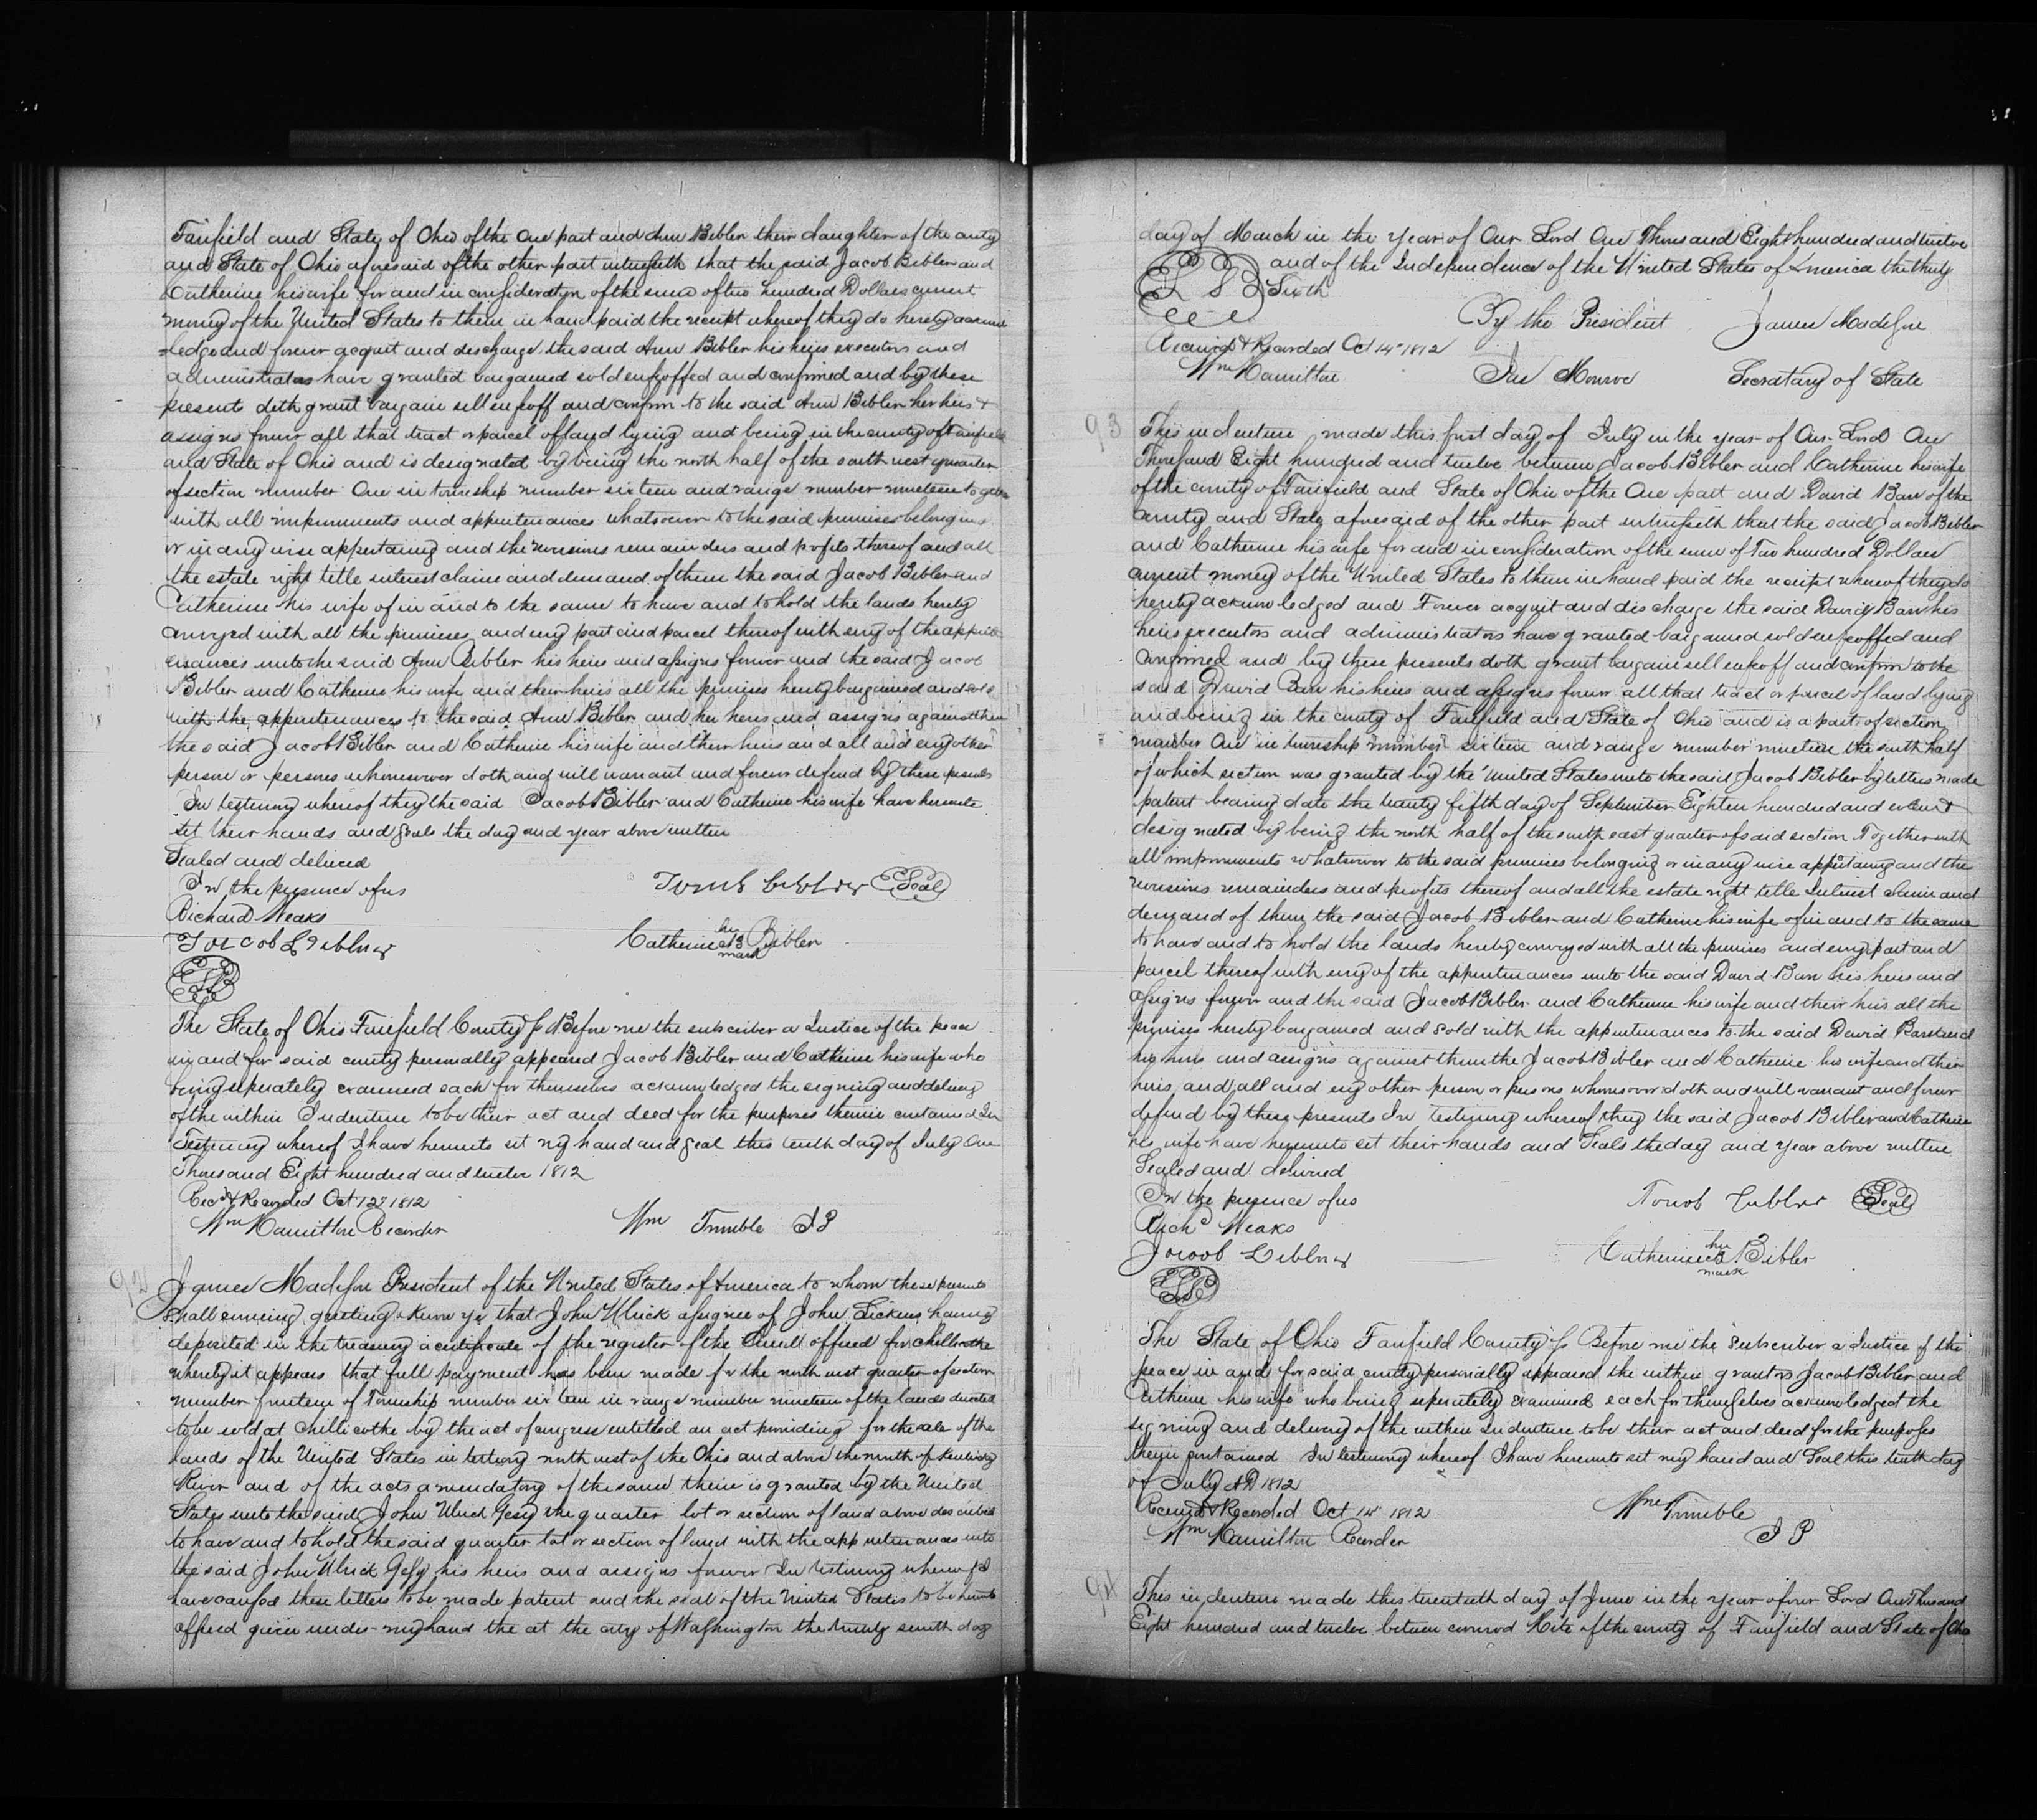 Fairfield and State of Ohio of the One part and Ann Bibler their daughter of the county
and State of Ohio aforesaid of the other part witnesseth that the said Jacob Bibler and
Catherine his wife for and in consideration of the sum of two hundred Dollars current
money of the United States to them in hand paid the receipt whereof they do hereby acknow
=ledge and forever acquit and discharge the said Ann Bibler his heirs executors and
administrators have granted bargained sold enfeoffed and confirmed and by these
presents doth grant bargain sell enfeoff and confirm to the said Ann Bibler her heirs &
assigns forever all that tract or parcel of land lying and being in the county of Fairfield
and State of Ohio and is designated by being the north half of the south west quarter
of section number One in township number sixteen and range number nineteen together
with all improvements and appurtenances whatsoever to the said premises belonging
or in any wise appertaining and the revisions remainders and profits thereof and all
the estate right title interest claim and demand of them the said Jacob Bibler and
Catherine his wife of in and to the same to have and to hold the lands hereby
conveyed with all the premises and evry part and parcel thereof with evry of the appurt
enances unto the said Ann Bibler his heirs and assigns forever and the said Jacob
Bibler and Catherine his wife and their heirs all the premises hereby bargained and sold
with the appurtenances to the said Ann Bibler and her heirs and assigns against them
the said Jacob Bibler and Catherine his wife and their heirs and all and evry other
person or persons whomsoever doth and will warrant and forever defend by these presents
In testimony whereof they the said Jacob Bibler and Catherine his wife have hereunto
set their hands and seals the day and year above written
Sealed and delivered
In the presence of us
Seal
Richard Weaks
Catherine her mark Bibler
The State of Ohio Fairfield County ss Before me the subscriber a Justice of the peace
in and for said county personally appeared Jacob Bibler and Catherine his wife who
being seperately examined each for themselves acknowledged the signing and delivery
of the within Indenture to be their act and deed for the purposes therein contained In
Testimony whereof I have hereunto set my hand and seal this tenth day of July One
Thousand Eight hundred and twelve 1812
Recd & Recorded Oct 12th 1812
Wm Hamilton Recorder
Wm Trimble JP
92
James Madison President of the United States of America to whom these presents
shall coming greeting know ye that John Ulrick assignee of John Sickens having
deposited in the treasury a certificate of the register of the
whereby it appears that full payment has been made for the north west quarter of section
number fourteen of Township number sixteen in range number nineteen of the lands directed
to be sold at Chillicothe by the act of congress entitled an act providing for the sale of the
lands of the United States in teritory north west of the Ohio and above the mouth of Kentucky
River and of the acts amendatory of the same there is granted by the United
States unto the said John Ulrick Gesy the quarter lot or section of land above described
to have and to hold the said quarter lot or section of land with the appurtenances unto
the said John Ulrick Gesy his heirs and assigns forever In testimony whereof I
have caused these letters to be made patent and the seal of the United States to be hereunto
affixed given under my hand the at the city of Washington the twenty seventh day
day of March in the year of Our Lord One Thousand Eight hundred and twelve
and of the Independence of the United States of America the thirty
L S
Sixth
By the President
James Madison
Received & Recorded Oct 14th 1812
Wm Hamilton
Jas Monroe
Secratary of State
93
This indenture made this first day of July in the year of Our Lord One
Thousand Eight hundred and twelve between Jacob Bibler and Catherine his wife
of the county of Fairfield and State of Ohio of the One part and David Barr of the
county and State aforesaid of the other part witnesseth that the said Jacob Bibler
and Catherine his wife for and in consideration of the sum of Two hundred Dollars
current money of the United States to them in hand paid the receipt whereof they do
hereby acknowledged and Forever acquit and discharge the said David Barr his
heirs executors and administrators have granted bargained sold enfeoffed and
confirmed and by these presents doth grant bargain sell enfeoff and confirm to the
said David Barr his heirs and assigns forever all that tract or parcel of land lying
and being in the county of Fairfield and State of Ohio and is a part of section
number One in township number sixteen and range number nineteen the south half
of which section was granted by the United States unto the said Jacob Bibler by letters made
patent bearing date the twenty fifth day of September Eighteen hundred and
designated by being the north half of the south east quarter of said section Together with
all improvements whatsoever to the said premises belonging or in any wise appertaining and the
revisions remainders and profits thereof and all the estate right title Interest claim and
demand of them the said Jacob Bibler and Catherine his wife of in and to the same
to have and to hold the lands hereby conveyed with all the premises and evry part and
parcel thereof with evry of the appurtenances unto the said David Barr his heirs and
assigns forever and the said Jacob Bibler and Catherine his wife and their heirs all the
premises hereby bargained and sold with the appurtenances to the said David Barr and
his heirs and assigns against them the Jacob Bibler and Catherine his wife and their
heirs and all and evry other person or persons whomsoever doth and will warrant and forever
defend by these presents In testimony whereof they the said Jacob Bibler and Catherine
his wife have hereunto set their hands and Seals the day and year above written
Sealed and delivered
In the presence of us
Seal
Richd Weaks
Catherine her mark Bibler
The State of Ohio Fairfield County ss Before me the Subscriber a Justice of the
peace in and for said county personally appeared the within grantors Jacob Bibler and
Catherine his wife who being seperately examined each for themselves acknowledged the
signing and delivery of the within Indenture to be their act and deed for the purposes
therein contained In testimony whereof I have hereunto set my hand and Seal this tenth day
of July AD 1812
Received & Recorded Oct 14th 1812
Wm Trimble
Wm Hamilton Recorder
JP
94
This indenture made this twentieth day of June in the year of our Lord One Thousand
Eight hundred and twelve between conrod Hite of the county of Fairfield and State of Ohio